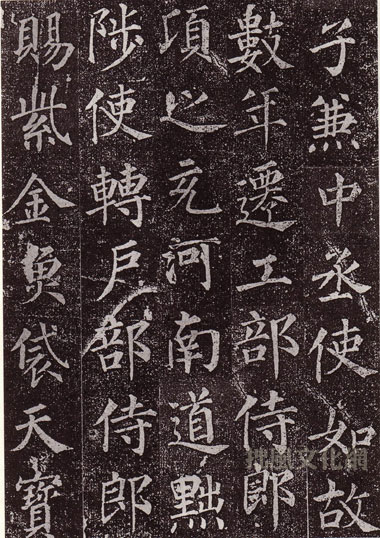 子兼中丞使如故
數年遷工部侍郎
頃之充河南道黜
陟使轉戶部侍郎
賜紫金魚袋天寶
拙風文化網